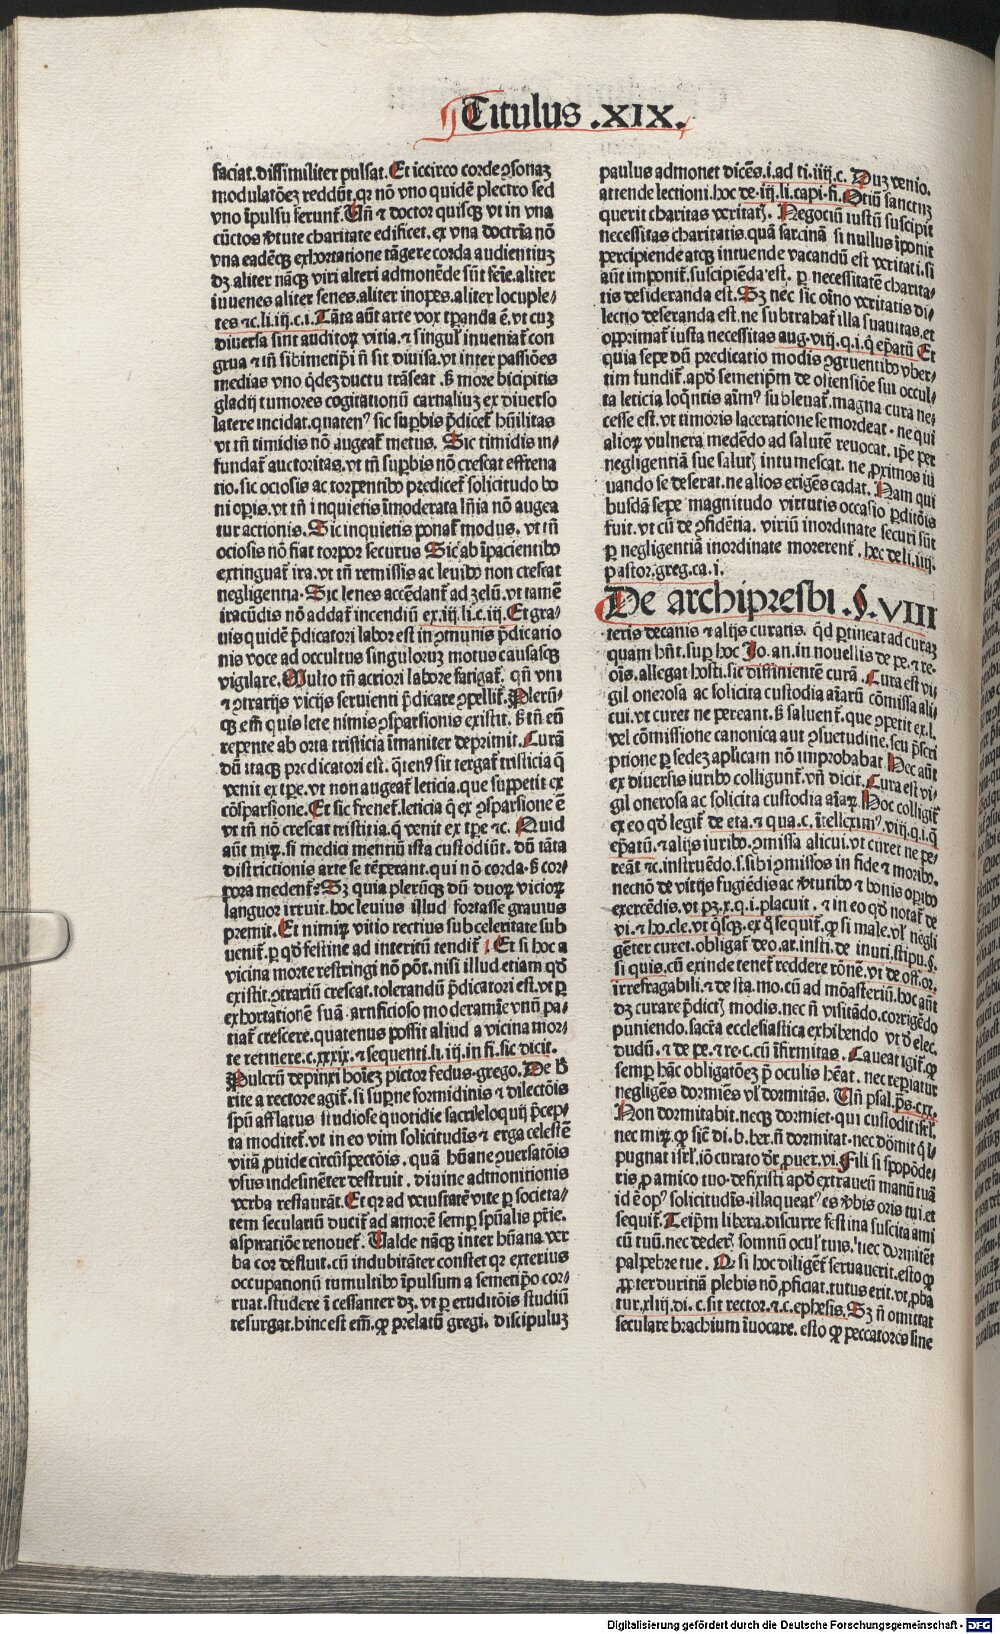 Titulus .XIX.
faciat.dissimiliter pulsat. Et iccirco corde ꝯsonaꝫ
modulatōeꝫ reddūt.qꝛ nō vno quidē plectro sed
vno īpulsu feruntᷣ. Un̄ ⁊ doctor quisqꝫ vt in vna
cūctos v̓tute charitate edificet. ex vna doctrīa nō
vna eadēqꝫ exhortatione tāgere corda audientiuꝫ
dꝫ. aliter nāqꝫ viri alteri admonēde sūt feīe.aliter
iuuenes aliter senes.aliter inopes.aliter locuple⸗
tes ⁊c.li.iij.c.i. Tāta aūt arte vox tꝑanda ē. vt cuꝫ
diuersa sint auditoꝝ vitia.⁊ singul̓ inueniatᷣ con
grua ⁊ tn̄ sibimetip̄i n̄ sit diuisa.vt inter passiōes
medias vno q̇deꝫ ductu trāseat .ẜ more bicipitis
gladij tumores cogitationū carnaliuꝫ ex diuerso
latere incidat.quatenꝰ sic suꝑbis p̄dicetᷣ hūilitas
vt tn̄ timidis nō augeatᷣ metus. Sic timidis in⸗
fundatᷣ auctoritas.vt tn̄ suꝑbis nō crescat effrena
tio. sic ociosis ac torpentibꝰ predicetᷣ solicitudo bo
ni oꝑis.vt tn̄ inquietis īmoderata ln̄ia nō augea
tur actionis. Sic inquietis ponatᷣ modus. vt tn̄
ociosis nō fiat torpor securus Sic ab īpacientibꝰ
extinguatᷣ ira.vt tn̄ remissis ac leuibꝰ non crescat
negligentia. Sic lenes accēdantᷣ ad zelū.vt tamē
iracūdis nō addatᷣ incendiū ex.iij.li.c.iij. Et gra⸗
uis quidē p̄dicatori labor est in ꝯmunis p̄dicatio
nis voce ad occultus singuloruꝫ motus causasqꝫ
vigilare. Multo tn̄ acriori labore fatigatᷣ. qn̄ vni
⁊ ꝯtrarijs vicijs seruienti p̄dicare ꝯpellitᷣ. Plerū⸗
qꝫ em̄ quis lete nimis ꝯsparsionis existit. ẜ tn̄ eū
repente ab orta tristicia īmaniter deprimit. Curā
dū itaqꝫ predicatori est. q̄tenꝰ sit tergatᷣ tristicia q̄
venit ex tꝑe. vt non augeatᷣ leticia.que suppetit ex
cōsparsione. Et sic frenetᷣ.leticia q̄ ex ꝯsparsione ē
vt tn̄ nō crescat tristitia.q̄ venit ex tꝑe ⁊c. Quid
aūt miꝝ.si medici mentiū ista custodiūt. dū tāta
districtionis arte se tēperant.qui nō corda.ẜ cor⸗
pora medentᷣ: Sꝫ quia plerūqꝫ dū duoꝝ vicioꝝ
languor irruit.hoc leuius illud fortasse grauius
premit. Et nimiꝝ vitio rectius sub celeritate sub
uenitᷣ.ꝑ qd̓ festine ad interitū tenditᷣ. Et si hoc a
vicina morte restringi nō pōt. nisi illud etiam qd̓
existit.ꝯtrariū crescat.tolerandū p̄dicatori est.vt ꝑ
exhortationē suā artificioso moderamīe vnū pa⸗
tiatᷣ crescere.quatenus possit aliud a vicina mor⸗
te retinere.c.xxxix.⁊ sequenti.li.iij.in fi.sic dicit.
Pulcrū depinxi hoīeꝫ pictor fedus.grego. De v̓
rite a rectore agitᷣ. si suꝑne formidinis ⁊ dilectōis
spū afflatus studiose quotidie sacri eloquij p̄cep⸗
ta meditetᷣ.vt in eo vim solicitudīs ⁊ erga celestē
vitā ꝓuide circūspectōis. quā hūane ꝯuersatōis
vsus indesinēter destruit. diuine admonitionis
verba restaurāt. Et qꝛ ad vetustatē vite ꝑ societa⸗
tem seculariū ducitᷣ ad amorē semꝑ spūalis pr̄ie.
aspiratiōe renouetᷣ. Ualde nāqꝫ inter hūana ver
ba cor defluit. cū indubitāter constet qꝛ exterius
occupationū tumultibꝰ īpulsum a semetip̄o cor⸗
ruat.studere īcessanter dꝫ.vt ꝑ eruditōis studiū
resurgat.hinc est em̄.qꝙ prelatū gregi. discipuluꝫ
paulus admonet dicēs.i.ad ti.iiij.c. Duꝫ venio.
attende lectioni.hoc de.iij.li.capi.fi. Otiū sanctuꝫ
querit charitas veritatꝭ. Negociū iustū suscipit
necessitas charitatis.quā sarcinā si nullus īponit
percipiende atqꝫ intuende vacandū est veritati.si
aūt imponitᷣ.suscipiēda est. ꝑ necessitatē charita⸗
tis desideranda est. Sꝫ nec sic oīno veritatis di⸗
lectio deseranda est.ne subtrahatᷣ illa suauitas.et
opprimatᷣ iusta necessitas aug.viij.q.i.q̇ ep̄atū Et
quia sepe dū predicatio modis ꝯgruentibꝰ vber⸗
tim funditᷣ.apd̓ semetip̄m de ostensiōe sui occul⸗
ta leticia loq̄ntis aīmꝰ subleuatᷣ.magna cura ne⸗
cesse est.vt timoris laceratione se mordeat.ne qui
alioꝝ vulnera medēdo ad salutē reuocat. ip̄e per
negligentiā sue salutꝭ intumescat.ne ꝓximos iu
uando se deserat.ne alios erigēs cadat. Nam qui
busdā sepe magnitudo virtutis occasio ꝑditōis
fuit.vt cū de ꝯfidētia. viriū inordinate securi sūt
ꝑ negligentiā inordinate morerentᷣ.hec de li.iiij.
pastor.greg.ca.i.
De archipresbi .§.VIII
teris decanis ⁊ alijs curatis. qd̓ ꝑtineat ad curaꝫ
quam hn̄t.suꝑ hoc Jo.an.in nouellis de pe.⁊ re⸗
ōis.allegat hosti.sic diffinientē curā. Cura est vi⸗
gil onerosa ac solicita custodia aīarū cōmissa ali⸗
cui.vt curet ne pereant.ẜ saluentᷣ.que ꝯpetit ex.l.
vel cōmissione canonica aut ꝯsuetudine.seu p̄scri
ptione ꝑ sedeꝫ aplicam nō improbabat Hec aūt
ex diuersis iuribꝰ colliguntᷣ.vn̄ dicit. Cura est vi⸗
gil onerosa ac solicita custodia aīaꝝ. Hoc colligitᷣ
ex eo qd̓ legitᷣ de eta.⁊ qua.c. ītelleximꝰ.viij.q.i.q̇
ep̄atū.⁊ alijs iuribꝰ.ꝯmissa alicui.vt curet ne pe⸗
reāt ⁊c.instruēdo.s.sibi ꝯmissos in fide ⁊ moribꝰ.
necnō de vitijs fugiēdis ac v̓tutibꝰ ⁊ bonis oꝑibꝰ
exercēdis.vt pꝫ.x.q.i.placuit. ⁊ in eo qd̓ notatᷣ de
vi.⁊ ho.cle.vt q̇sqꝫ.ex q̇ sequitᷣ.qꝙ si male.vl̓ negli
gēter curet.obligatᷣ deo.ar.insti.de iniuri.stipu.§.
si quis.cū exinde tenetᷣ reddere rōnē.vt de off.or.
irrefragabili.⁊ de sta.mo.cū ad mōasteriū.hoc aūt
dꝫ curare p̄dictꝭ modis.nec n̄ visitādo.corrigēdo
puniendo.sacrā ecclesiastica exhibendo vt d̓ elec.
dudū.⁊ de pe.⁊ re.c.cū īfirmitas. Caueat igitᷣ.qꝙ
semꝑ hāc obligatōeꝫ p̄ oculis hēat. nec reꝑiatur
negligēs dormiēs vl̓ dormitās. Un̄ psal.ps.cxx.
Non dormitabit.necqꝫ dormiet.qui custodit isrl̓.
nec miꝝ.qꝙ sicut di.b.ber.n̄ dormitat.nec dōmit q̇ ī
pugnat isrl̓.iō curato dr̄.puer.vi. Fili si spopōde⸗
ris ꝓ amico tuo.defixisti apd̓ extraneū manū tuā
id ē opꝰ solicitudīs.illaqueatꝰ es v̓bis oris tui.et
sequitᷣ. Teip̄m libera.discurre festina suscita ami
cū tuū.nec dederꝭ somnū oculꝭ tuis. nec dormitēt
palpebre tue. Qꝙ si hoc diligētᷣ seruauerit.esto qꝙ
ꝓpter duritiā plebis nō ꝓficiat.tutus erit.vt ꝓba
tur.xliij.di.c.sit rector.⁊.c.ephesis. Sꝫ n̄ omittat
seculare brachium īuocare. esto qꝙ peccatores sine
Digitalisierung gefördert durch die Deutsche Forschungsgemeinschaft - DFG